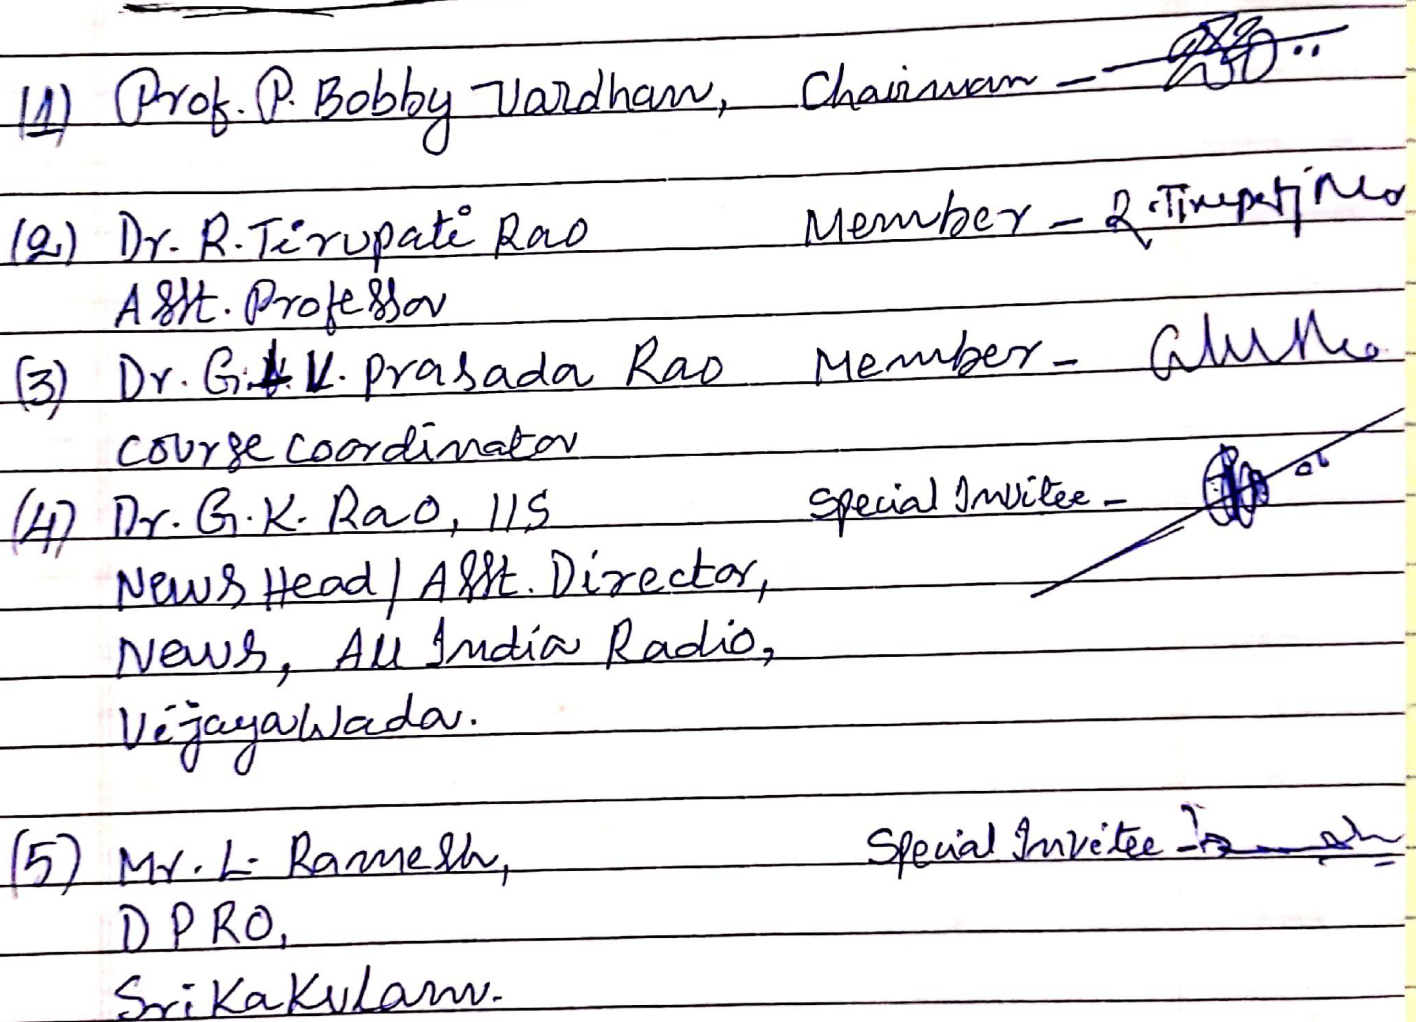 (1) Prof. P. Bobby Vardhan, Chairman -
(2) Dr. R. Tirupati Rao Member - R. Tirupati Rao
Asst. Professor
(3) Dr. G. V. Prasada Rao Member -
Course Coordinator
(4) Dr. G. K. Rao, IIS Special Invitee -
News Head / Asst. Director,
News, All India Radio,
Vijayawada.
(5) Mr. L. Ramesh, Special Invitee -
DPRO,
Srikakulam.